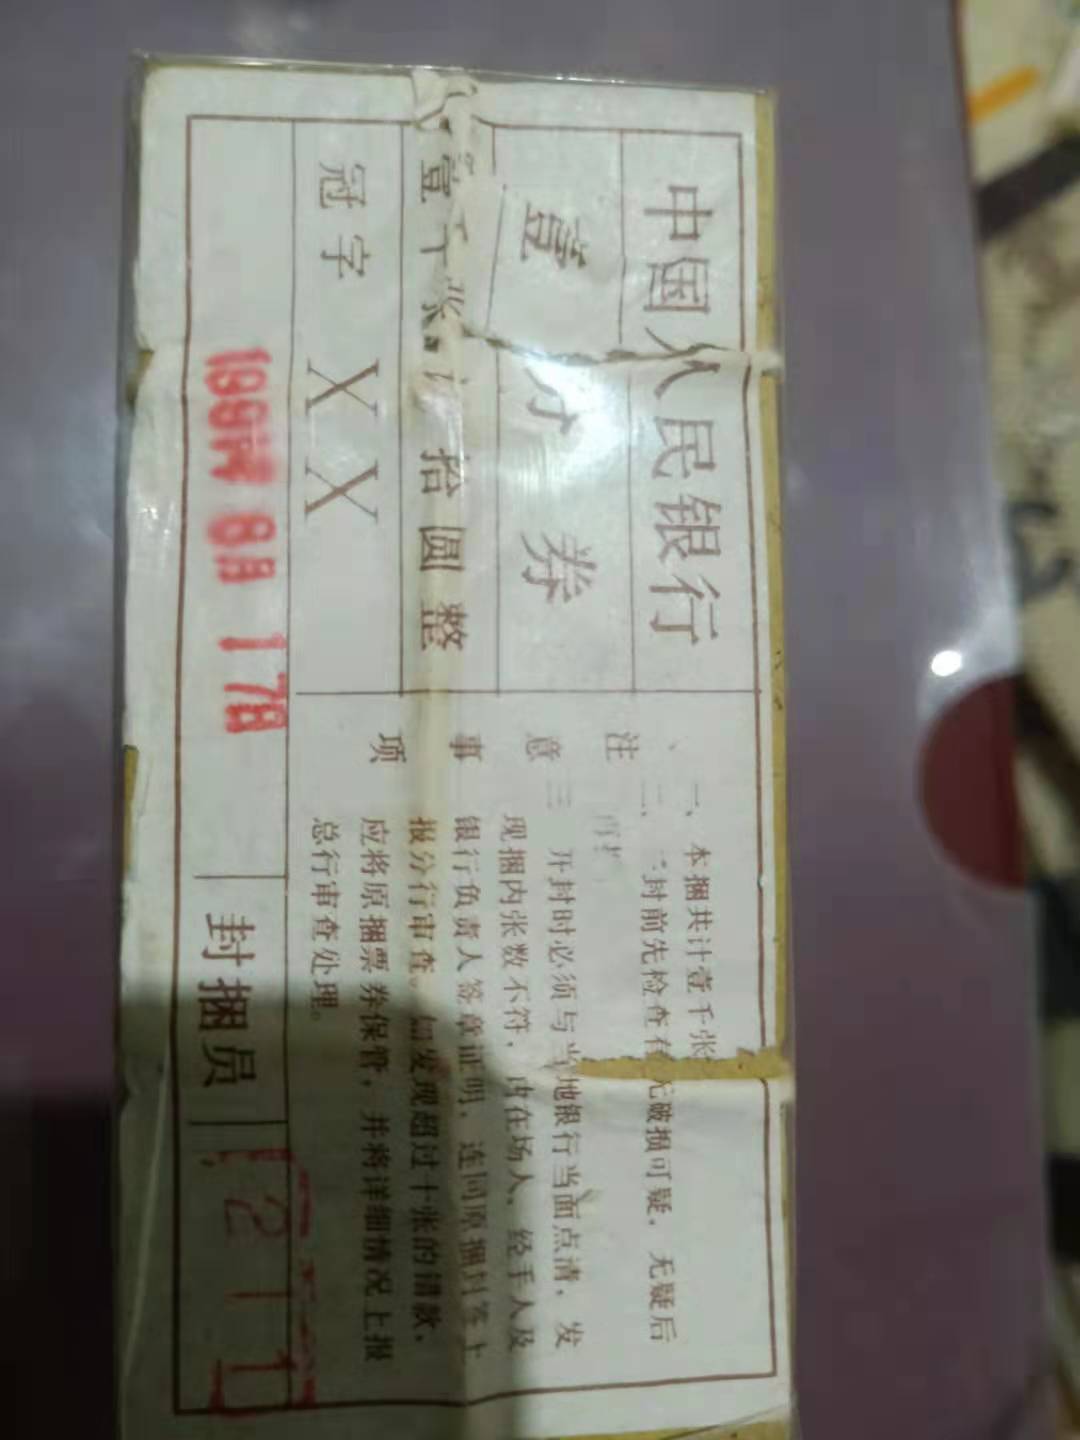 中国人民银行
壹分券
壹千张计拾圆整
冠字 XX
封捆员
211
注意事项
一、本捆共计壹千张
封前先检查有无破损可疑，无疑后
再
三、开封时必须与当地银行当面点清，发
现捆内张数不符，由在场人、经手人及
银行负责人签章证明，连同原捆封签上
报分行审查。如发现超过十张的错款，
应将原捆票券保管，并将详细情况上报
总行审查处理。